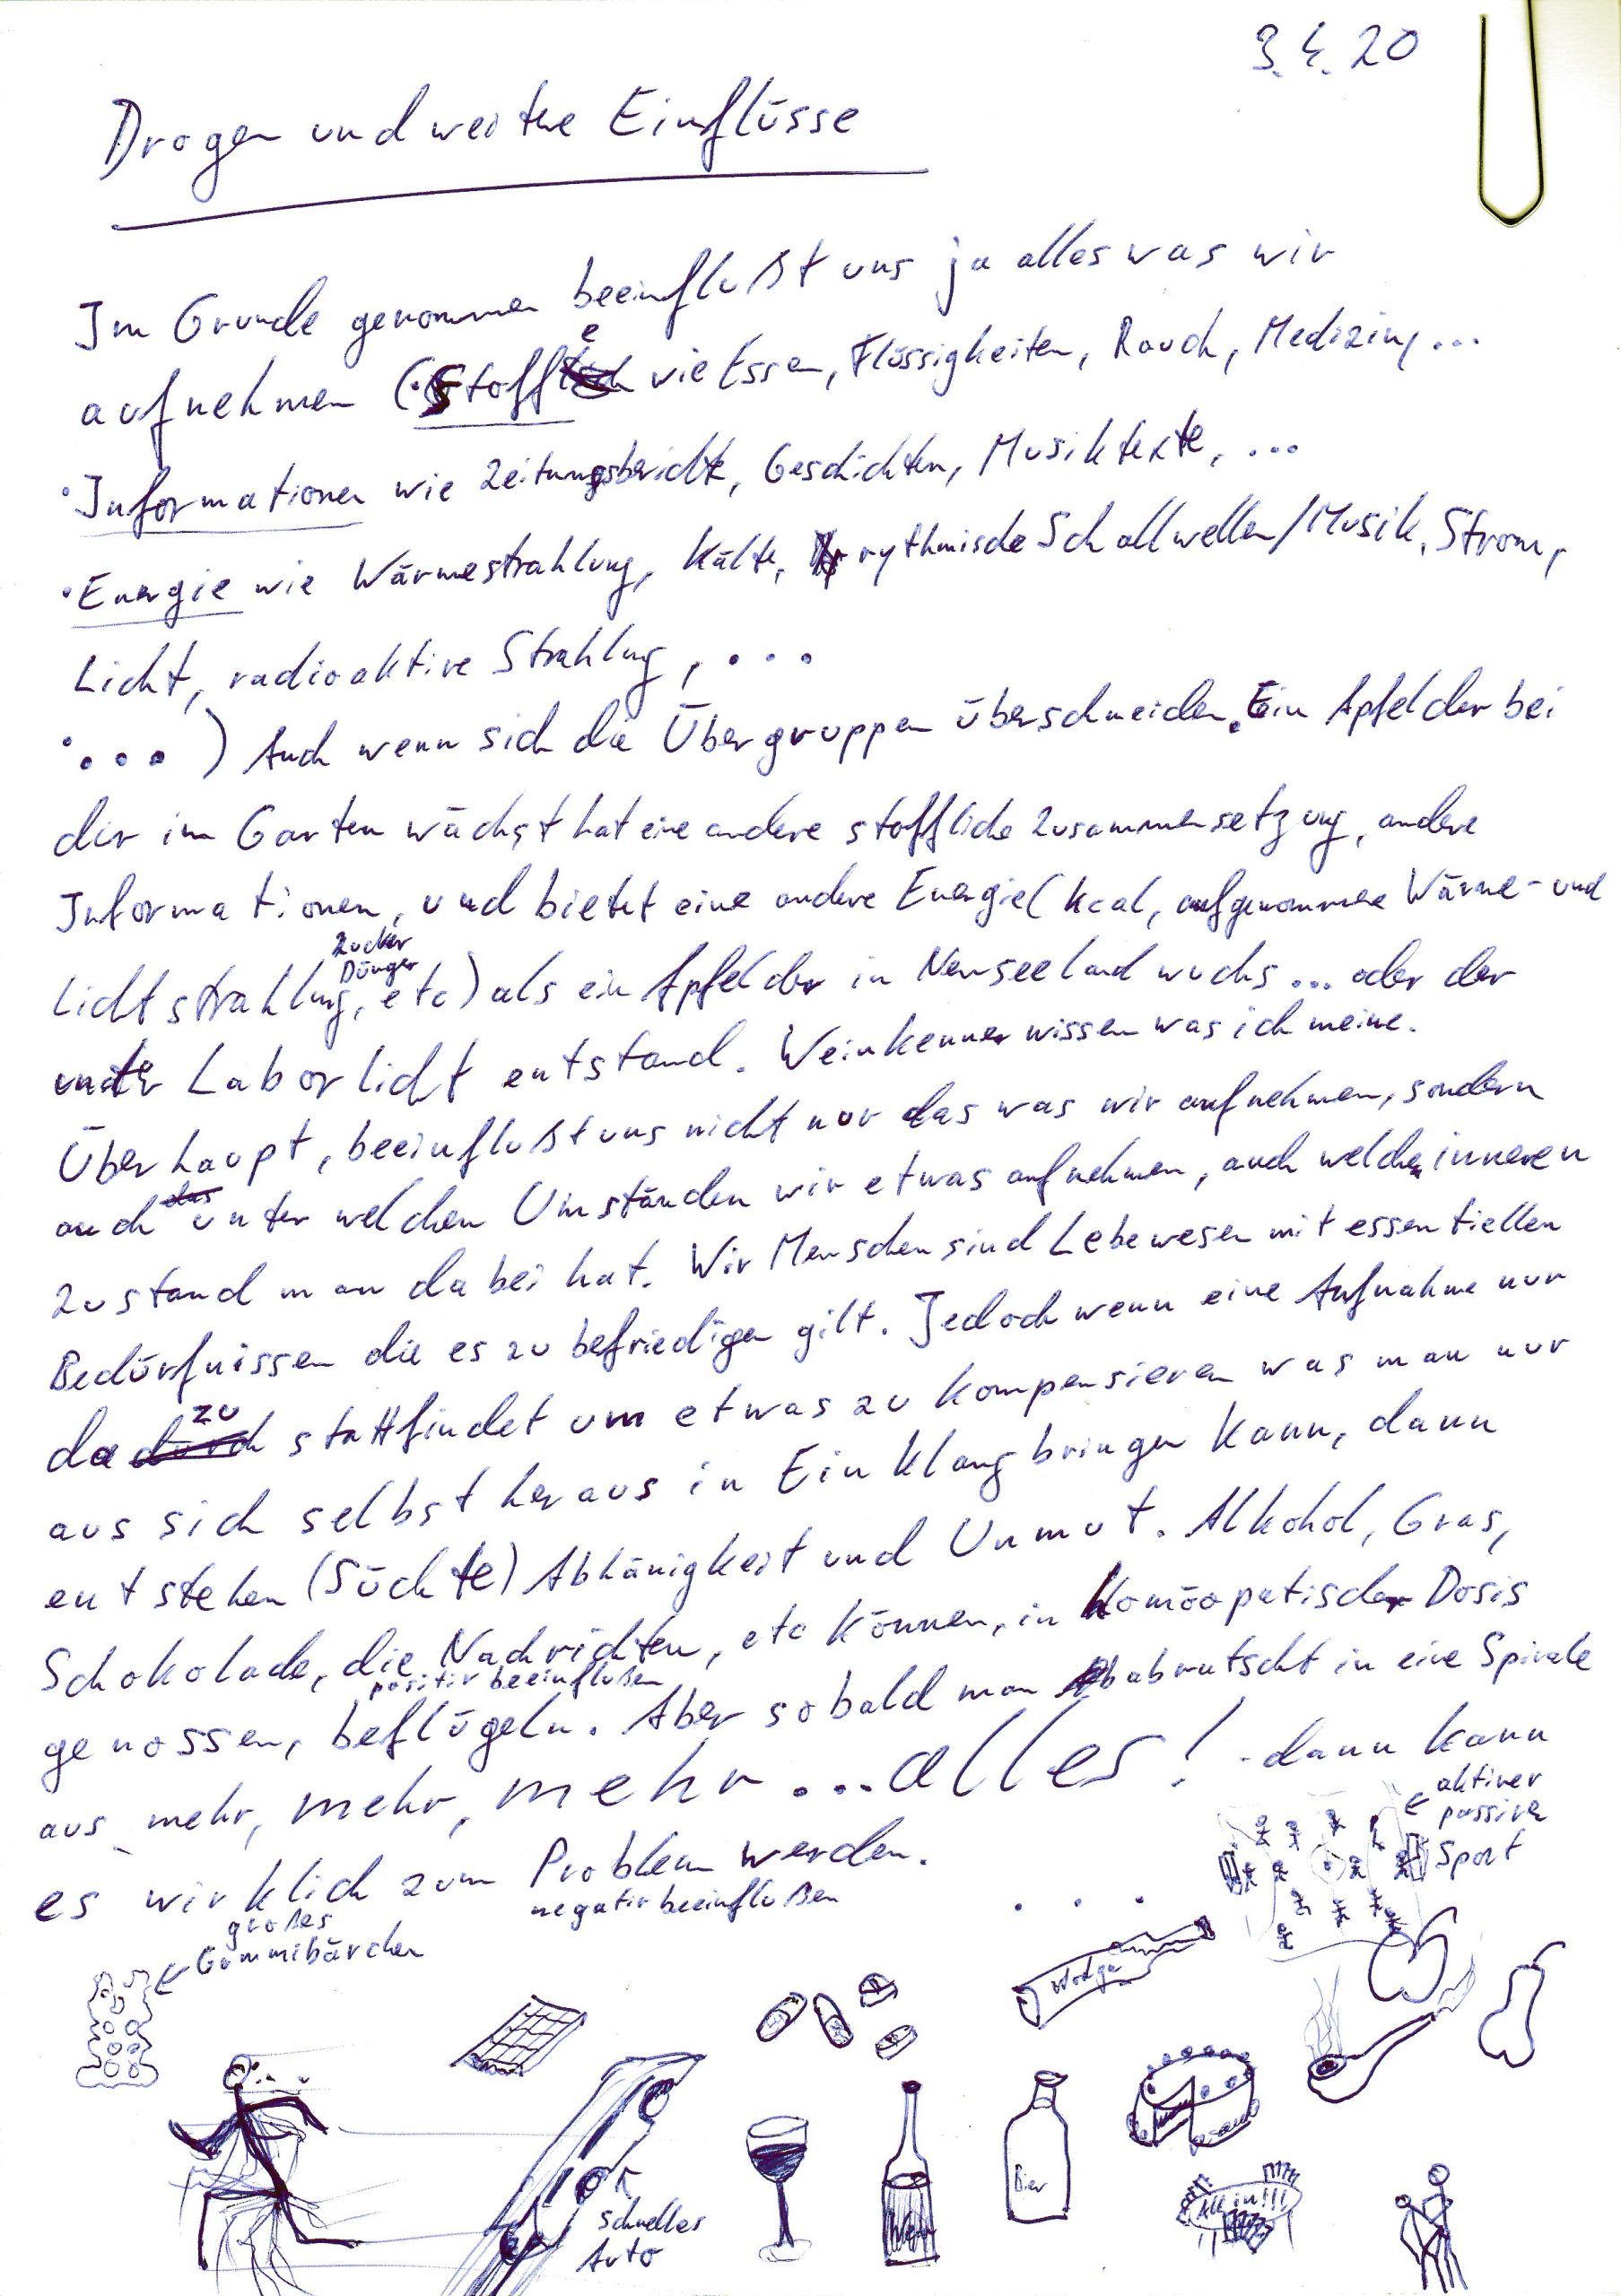 3.4.20
Drogen und weitere Einflüsse
Im Grunde genommen beeinflußt uns ja alles was wir
aufnehmen (·Stoffe wie Essen, Flüssigkeiten, Rauch, Medizin, ...
·Informationen wie Zeitungsberichte, Geschichten, Musiktexte, ...
·Energie wie Wärmestrahlung, Kälte, rythmische Schallwellen/Musik, Strom,
Licht, radioaktive Strahlung, ...
· ... ) Auch wenn sich die Übergruppen überschneiden. Ein Apfel der bei
dir im Garten wächst hat eine andere stoffliche Zusammensetzung, andere
Informationen, und bietet eine andere Energie (kcal, aufgenommene Wärme- und
Zucker
Dünger
Lichtstrahlung, etc) als ein Apfel der in Neuseeland wuchs ... oder der
unter Laborlicht entstand. Weinkenner wissen was ich meine.
Überhaupt, beeinflußt uns nicht nur das was wir aufnehmen, sondern
auch unter welchen Umständen wir etwas aufnehmen, auch welchen inneren
Zustand man dabei hat. Wir Menschen sind Lebewesen mit essentiellen
Bedürfnissen die es zu befriedigen gilt. Jedoch wenn eine Aufnahme nur
dazu stattfindet um etwas zu kompensieren was man nur
aus sich selbst heraus in Einklang bringen kann, dann
entstehen (Süchte) Abhänigkeit und Unmut. Alkohol, Gras,
Schokolade, die Nachrichten, etc können, in homöopatischer Dosis
positiv beeinflußen
genossen, beflügeln. Aber sobald man abrutscht in eine Spirale
aus mehr, mehr, mehr ... alles! - dann kann
es wirklich zum Problem werden.
negativ beeinflußen
...
aktiver
passiver
Sport
großes
Gummibärchen
Wodga
schnelles
Auto
Wein
Bier
All in!!!